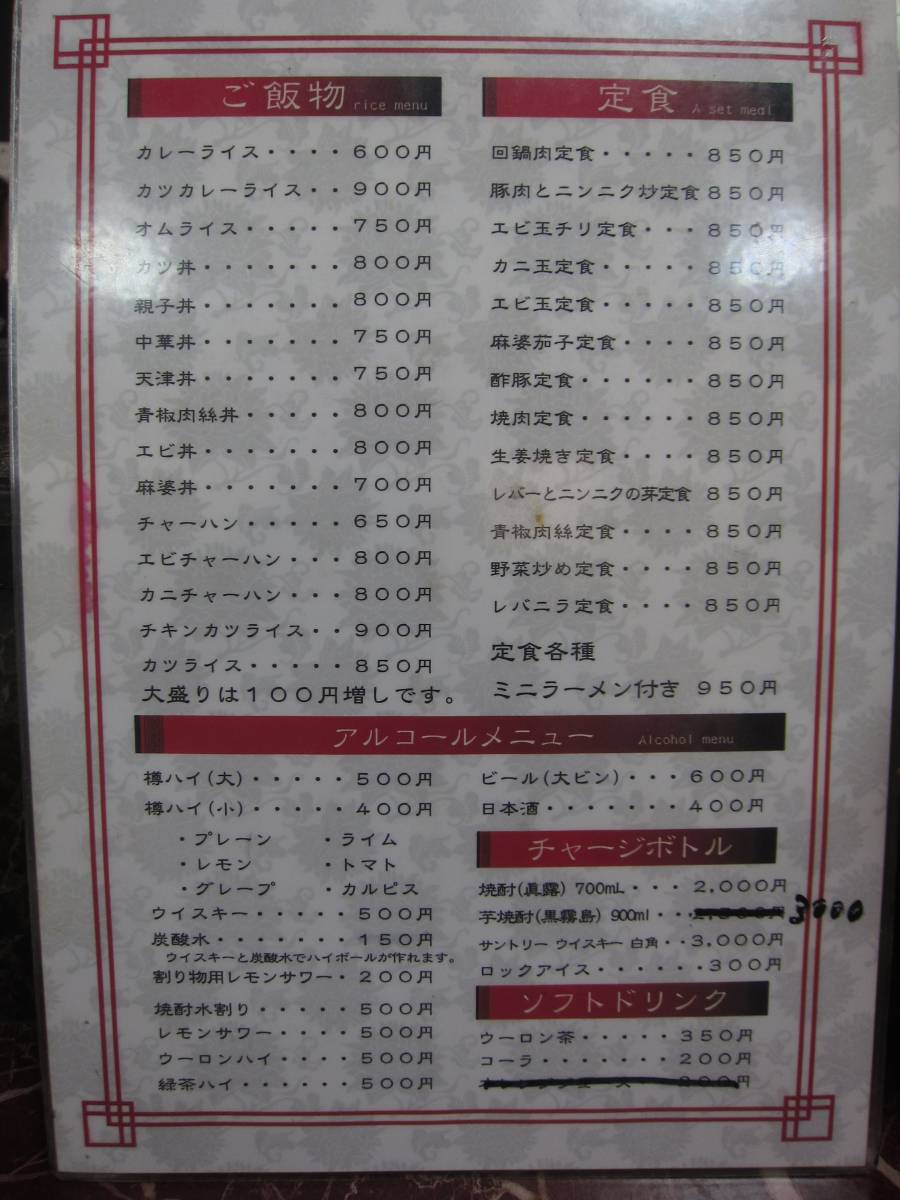 ご飯物 rice menu
カレーライス・・・・６００円
カツカレーライス・・９００円
オムライス・・・・・７５０円
カツ丼・・・・・・・８００円
親子丼・・・・・・・８００円
中華丼・・・・・・・７５０円
天津丼・・・・・・・７５０円
青椒肉絲丼・・・・・８００円
エビ丼・・・・・・・８００円
麻婆丼・・・・・・・７００円
チャーハン・・・・・６５０円
エビチャーハン・・・８００円
カニチャーハン・・・８００円
チキンカツライス・・９００円
カツライス・・・・・８５０円
大盛りは１００円増しです。
定食 A set meal
回鍋肉定食・・・・・８５０円
豚肉とニンニク炒定食８５０円
エビ玉チリ定食・・・８５０円
カニ玉定食・・・・・８５０円
エビ玉定食・・・・・８５０円
麻婆茄子定食・・・・８５０円
酢豚定食・・・・・・８５０円
焼肉定食・・・・・・８５０円
生姜焼き定食・・・・８５０円
レバーとニンニクの芽定食 ８５０円
青椒肉絲定食・・・・８５０円
野菜炒め定食・・・・８５０円
レバニラ定食・・・・８５０円
定食各種
ミニラーメン付き ９５０円
アルコールメニュー Alcohol menu
樽ハイ(大)・・・・・５００円
樽ハイ(小)・・・・・４００円
・プレーン ・ライム
・レモン ・トマト
・グレープ ・カルピス
ウイスキー・・・・・５００円
炭酸水・・・・・・・１５０円
ウイスキーと炭酸水でハイボールが作れます。
割り物用レモンサワー・２００円
焼酎水割り・・・・・５００円
レモンサワー・・・・５００円
ウーロンハイ・・・・５００円
緑茶ハイ・・・・・・５００円
ビール(大ビン)・・・６００円
日本酒・・・・・・・４００円
チャージボトル
焼酎(眞露) 700mL・・・２,０００円
芋焼酎(黒霧島) 900ml・・・ 3000
サントリー ウイスキー 白角・・３,０００円
ロックアイス・・・・・・３００円
ソフトドリンク
ウーロン茶・・・・・３５０円
コーラ・・・・・・・２００円